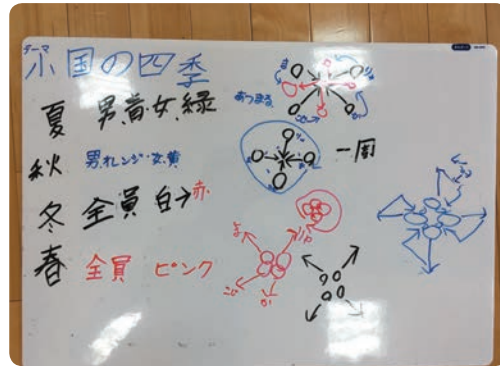 テーマ
小国の四季
夏 男、着、女、緑
秋 男オレンジ・女、黄
冬 全員 白→赤
春 全員 ピンク
あつまる
一周